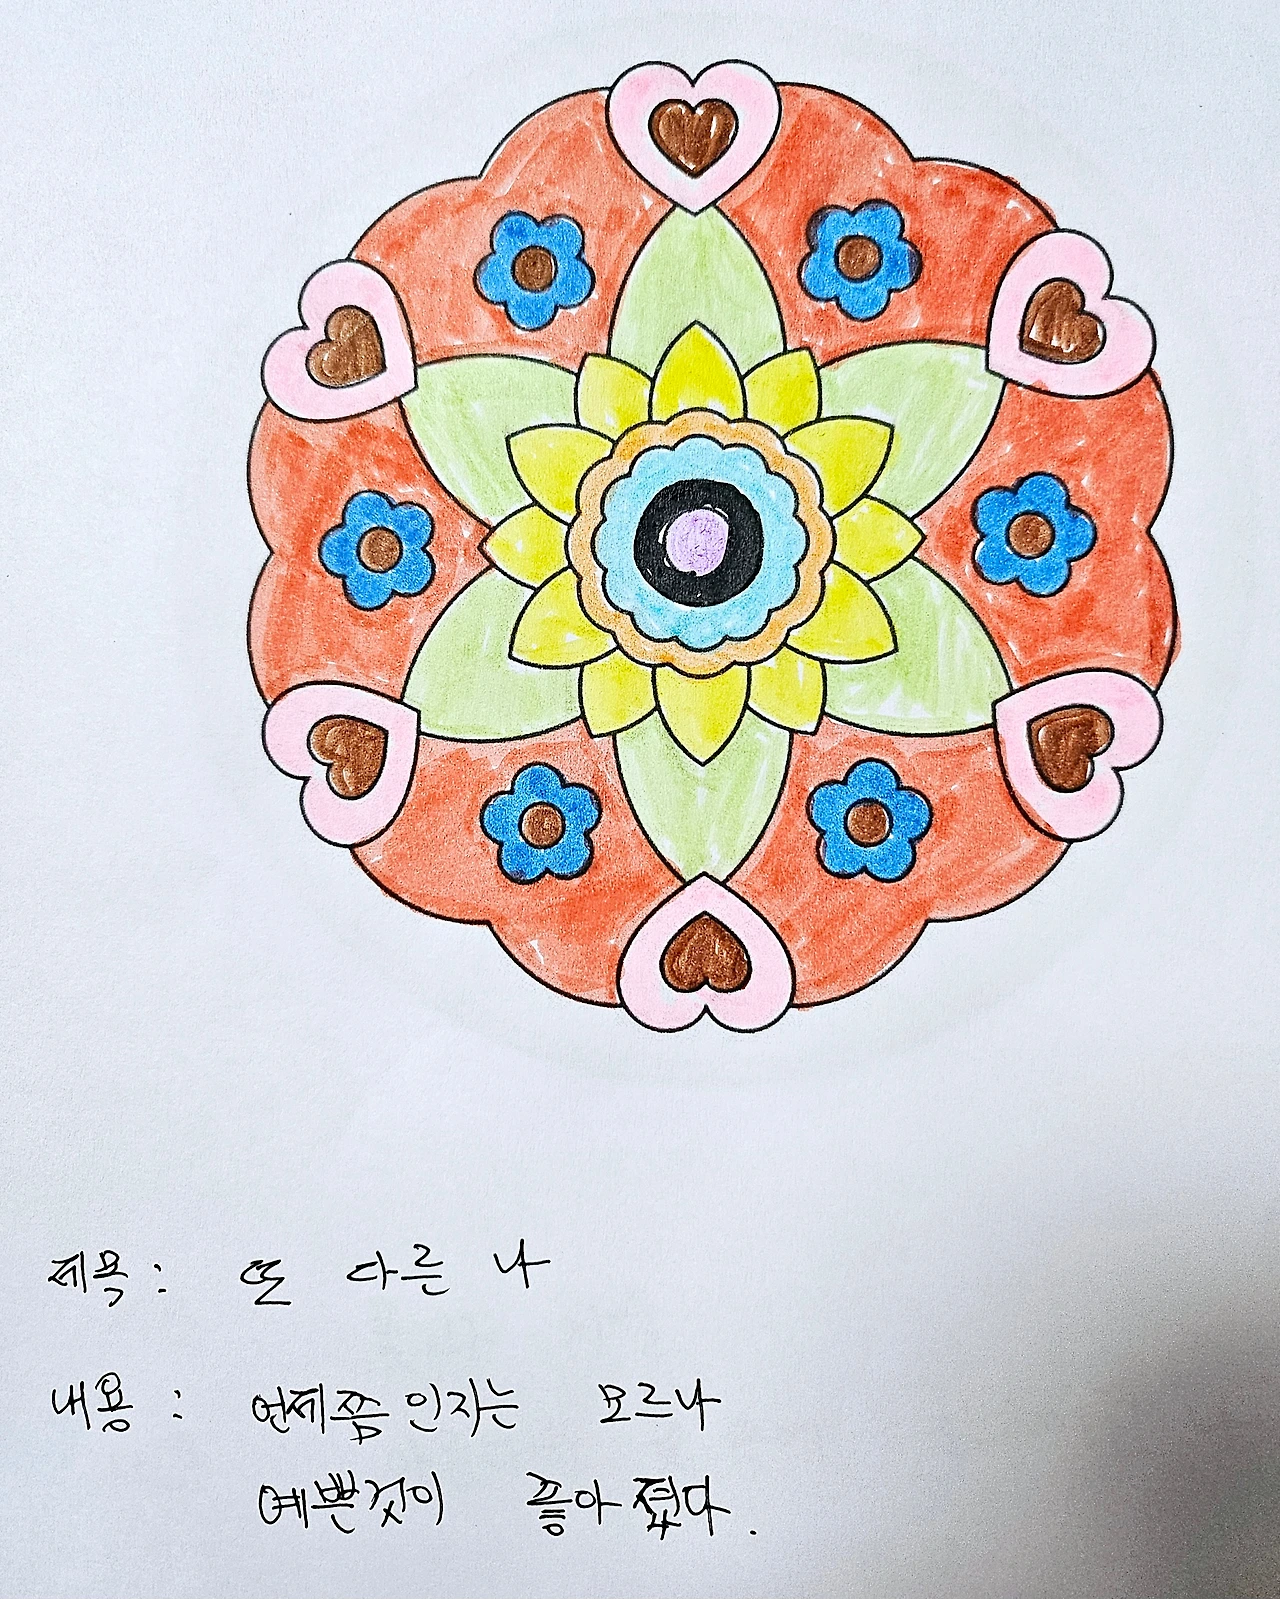 제목 : 또 다른 나
내용 : 언제쯤인지는 모르나
예쁜것이 좋아졌다.